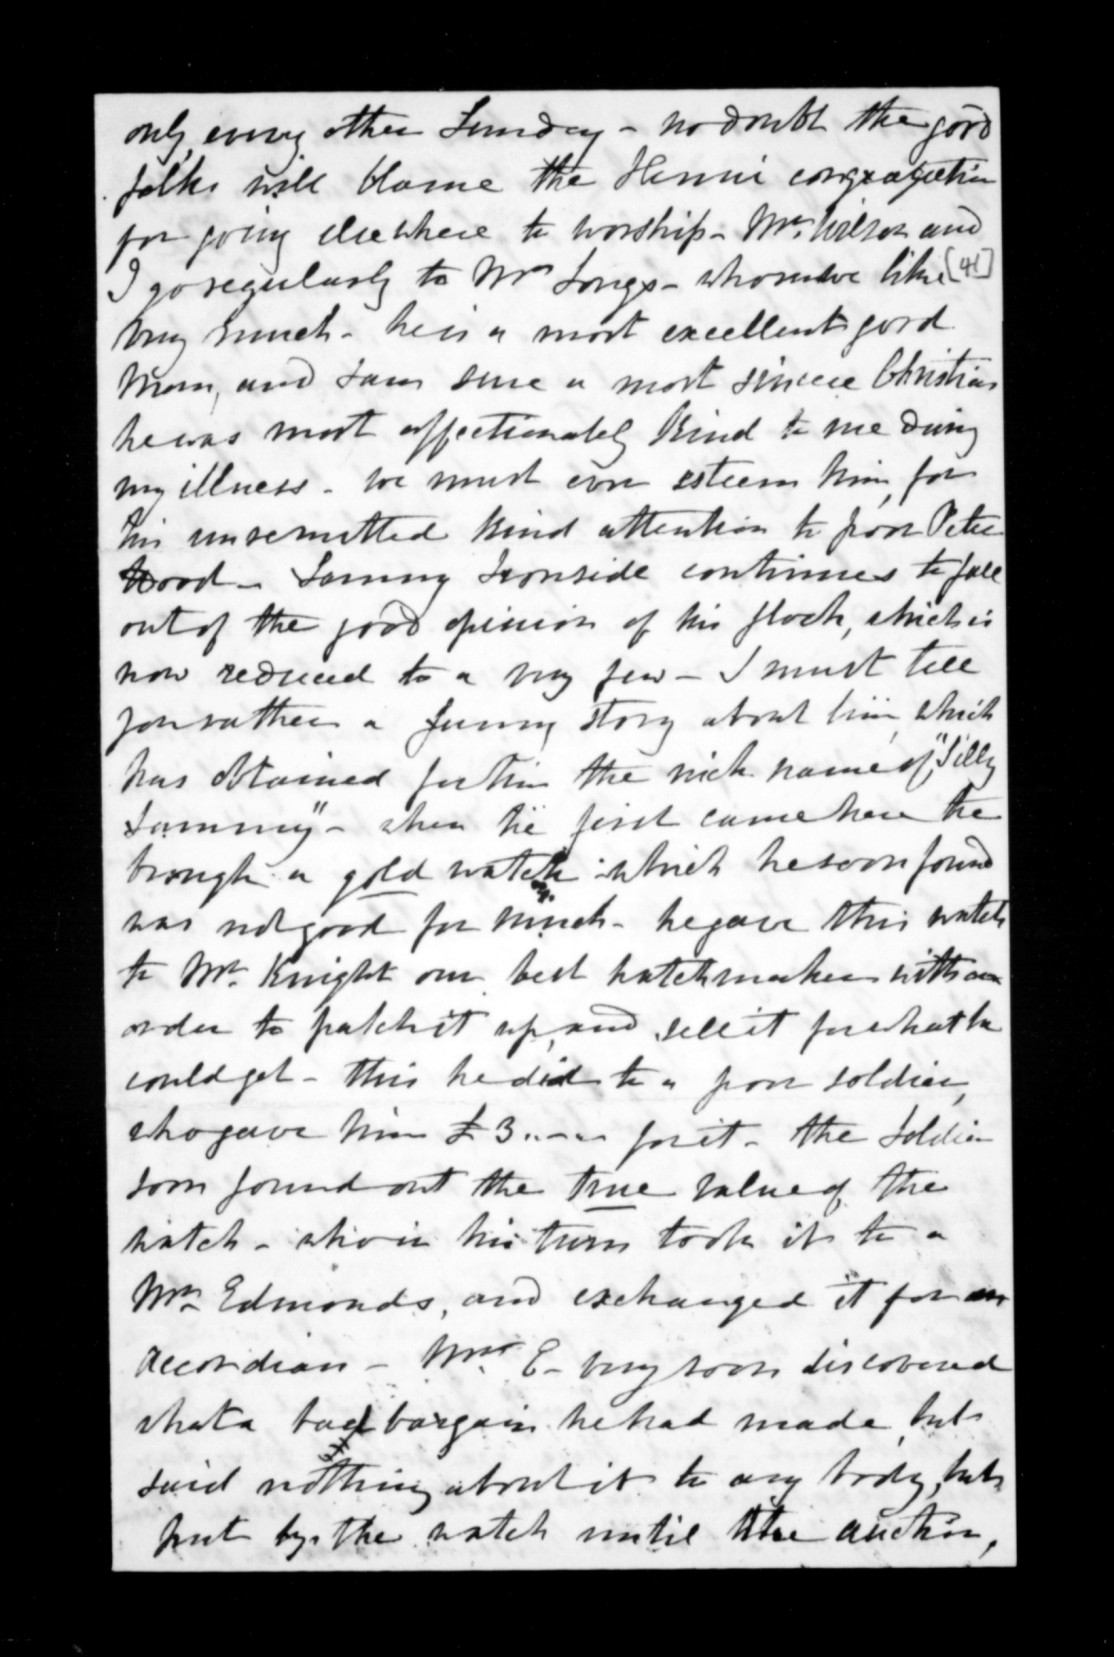 only every other Sunday - no doubt the good
folks will blame the Henui congregation
for going elsewhere to worship - Mr. Wilson and
I go regularly to Mr Longs - whom we like [41]
very much - he is a most excellent good
man, and I am sure a most sincere Christian
he was most affectionately kind to me during
my illness - we must ever esteem him, for
his unremitted kind attention to poor Peter
Hood - Sammy Ironside continues to fall
out of the good opinion of his flock, which is
now reduced to a very few - I must tell
you rather a funny story about him, which
has obtained for him the nick name of, "Silly
Sammy" - when he first came here he
brough a gold watch which he soon found
was not good for much - he gave this watch
to Mr. Knight our best watchmaker with an
order to patch it up, and sell it for what he
could get - this he did to a poor soldier,
who gave him £3..-.- for it - the soldier
soon found out the true value of the
watch - who in his turn took it to a
Mr. Edmonds, and exchanged it for an
accordian - Mr. E - very soon discovered
what a bad bargain he had made, but
said nothing about it to any body, but
put by the watch until the auction,